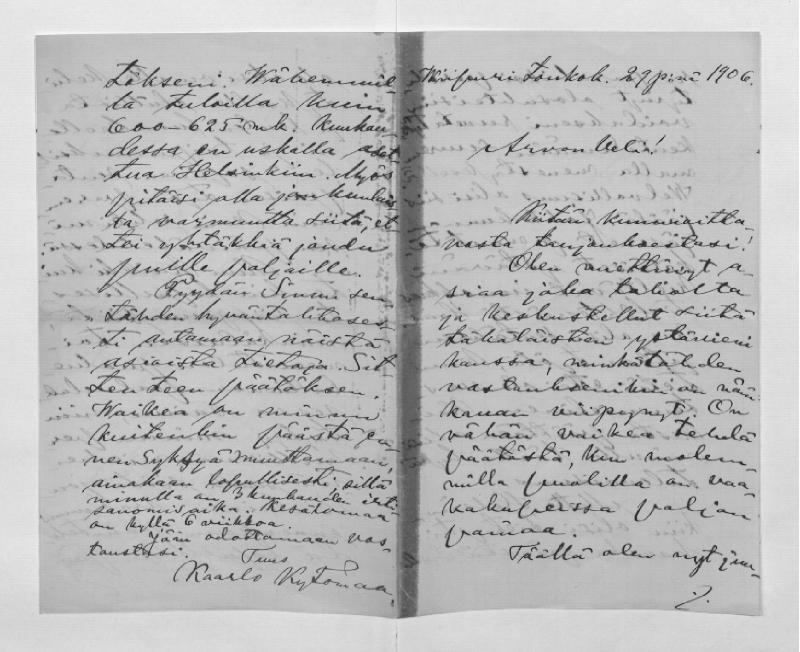 Wiipuri Toukok. 29 p:nä 1906.
Arvon Veli!
Kiitän kunnioitta-
vasta tarjouksestasi!
Olen miettinyt a-
siaa joka taholta
ja keskustellut siitä
takalaisten ystävieni
kanssa, minkätähden
vastauksenikin on näin
kauan viipynyt. On
vähän vaikea tehdä
päätöstä, kun molem-
milla puolilla on vaa-
kakupeissa paljon
painoa.
Täällä olen nyt juu-
./.
kseni. Wähemmil-
tä tuloilla kuin
600-625 mk. kuukau-
dessa en uskalla aset-
tua Helsinkiin. Myös
pitäisi olla jonkunlais-
ta varmuutta siitä, et-
tei yhtäkkiä joudu
puille paljaille.
Pyydän Sinua sen-
tähden hyväntahtoises-
ti antamaan näistä
asioista tietoja. Sit-
ten teen päätöksen.
Waikea on minun
kuitenkin päästä en-
nen syksyä muuttamaan,
ainakaan lopullisesti, sillä
minulla on 3 kuukauden irti-
sanomisaika. Kesälomaa
on kyllä 6 viikkoa.
Jään odottamaan vas-
taustasi. Tuus
Kaarlo Kytömaa.